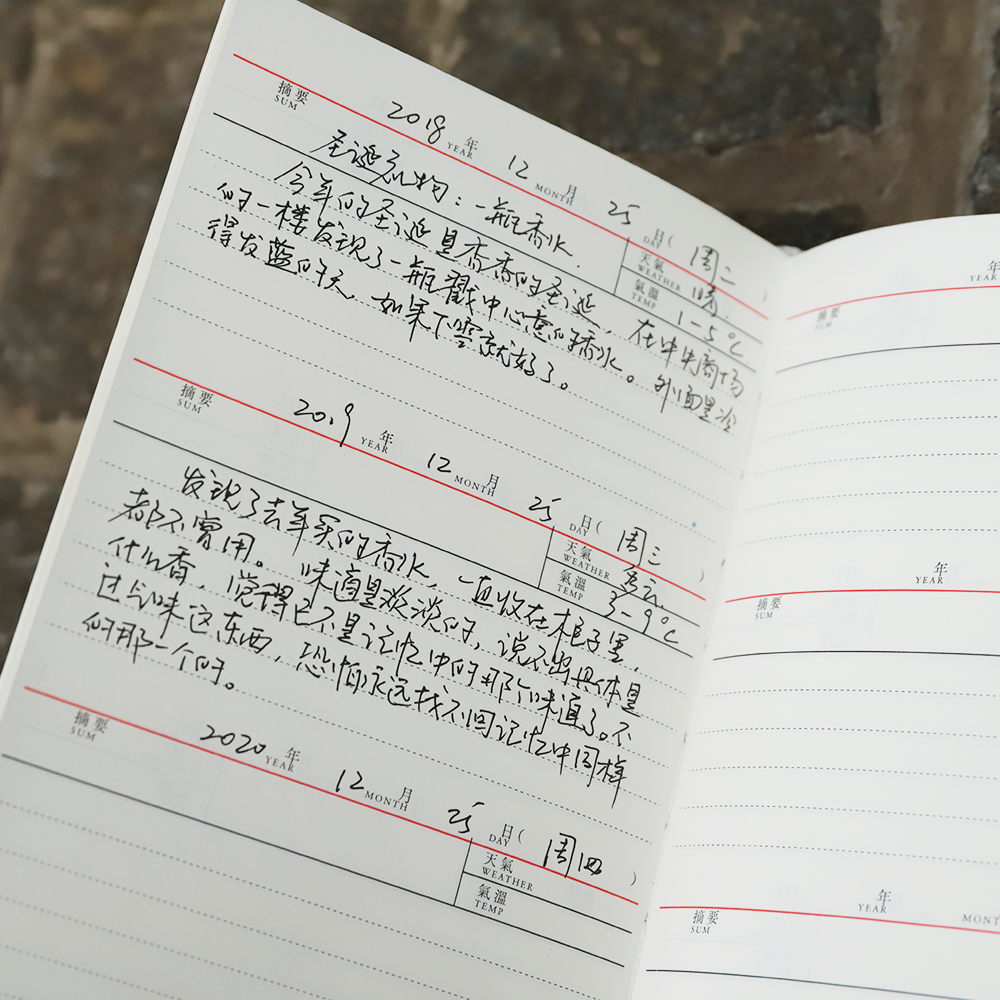 摘要 2018 年 12 月 25 日( 周二 )
SUM YEAR MONTH DAY
天氣 晴
WEATHER
氣溫 1-5℃
TEMP
圣诞礼物：一瓶香水.
今年的圣诞是香香的圣诞，在中央商场
的一楼发现了一瓶戳中心意的香水。外面是冷
得发蓝的天，如果下雪就好了。
摘要 2019 年 12 月 25 日( 周三 )
SUM YEAR MONTH DAY
天氣 多云
WEATHER
氣溫 3-9℃
TEMP
发现了去年买的香水，一直收在柜子里，
都不曾用。味道是淡淡的，说不出具体是
什么香，觉得已不是记忆中的那个味道了。不
过气味这东西，恐怕永远找不回记忆中同样
的那一个的。
摘要 2020 年 12 月 25 日( 周四 )
SUM YEAR MONTH DAY
天氣
WEATHER
氣溫
TEMP
摘要 年
SUM
摘要 年
SUM YEAR
摘要 年
SUM YEAR